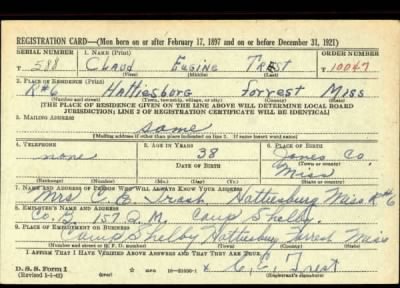 REGISTRATION CARD—(Men born on or after February 17, 1897 and on or before December 31, 1921)
SERIAL NUMBER 1. NAME (Print) ORDER NUMBER
T 588 Claud Eugine Trest T 10047
(First) (Middle) (Last)
2. PLACE OF RESIDENCE (Print)
R#6 Hattiesburg Forrest Miss
(Number and street) (Town, township, village, or city) (County) (State)
[THE PLACE OF RESIDENCE GIVEN ON THE LINE ABOVE WILL DETERMINE LOCAL BOARD
JURISDICTION; LINE 2 OF REGISTRATION CERTIFICATE WILL BE IDENTICAL]
3. MAILING ADDRESS
Same
[Mailing address if other than place indicated on line 2. If same insert word same]
4. TELEPHONE 5. AGE IN YEARS 6. PLACE OF BIRTH
none 38 Jones Co.
DATE OF BIRTH (Town or county)
Miss
(State or country)
7. NAME AND ADDRESS OF PERSON WHO WILL ALWAYS KNOW YOUR ADDRESS
Mrs. C. E. Trest, Hattiesburg Miss. R#6
8. EMPLOYER'S NAME AND ADDRESS
Co. B. 157 Q.M. Camp Shelby.
9. PLACE OF EMPLOYMENT OR BUSINESS
Camp Shelby Hattiesburg Forrest Miss
(Number and street or R. F. D. number) (Town) (County) (State)
I AFFIRM THAT I HAVE VERIFIED ABOVE ANSWERS AND THAT THEY ARE TRUE.
D. S. S. Form 1
(Revised 1-1-42) (over) x C. E. Trest
(Registrant's signature)